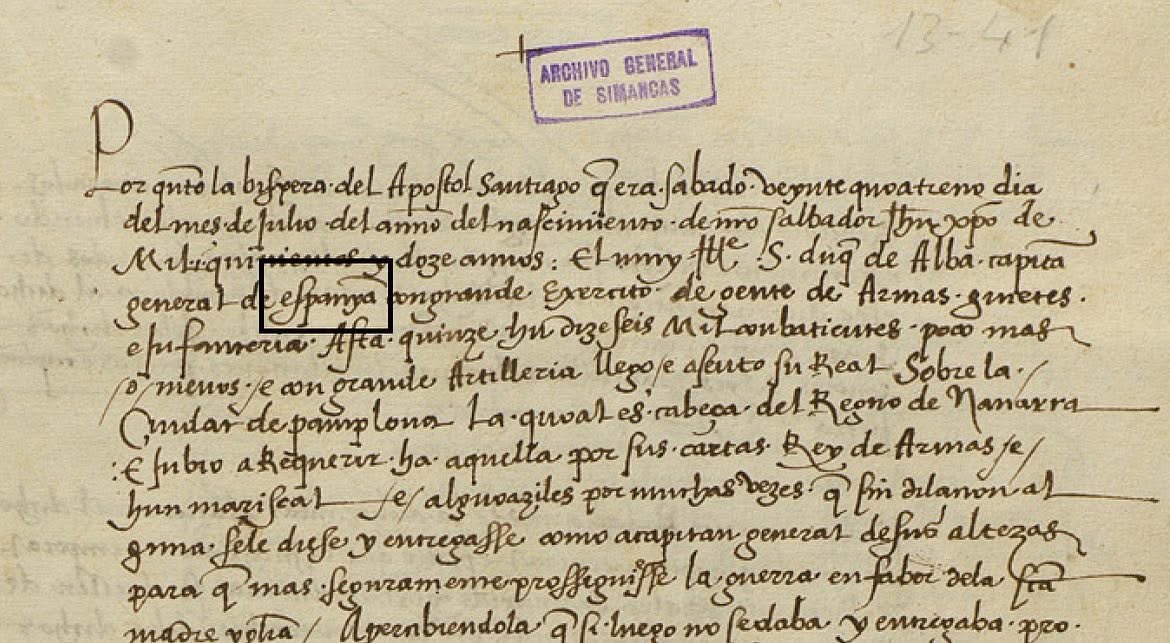 13-41
ARCHIVO GENERAL
DE SIMANCAS
Por qnto la bispera del Apostol Santiago q era sabado veynte quoatreno dia
del mes de Julio del anno del nascimiento de nro salbador Jhu xpo de
Mil quinientos y doze annos: El muy Ille S. duq de Alba capitã
general de espanya con grande Exercito de gente de Armas ginetes
e Infanteria Asta quinze hu dizeseis Mil conbatientes poco mas
/o/ menos /e con grande Artilleria llego /e asento su Real Sobre la
Ciudat de pamplona La quoal es cabeça del Regno de Nauarra
E Inbio a Requerir ha aquella por sus cartas Rey de Armas /e/
hun mariscal /e/ alguoaziles por muchas vezes q sin dilacion al
guna se le diese y entregasse como a capitan general de sus altezas
para q mas seguramente prossiguisse la guerra en fabor dela scta
madre yglia / Apercibiendola q si luego no se daba y entregaba pro